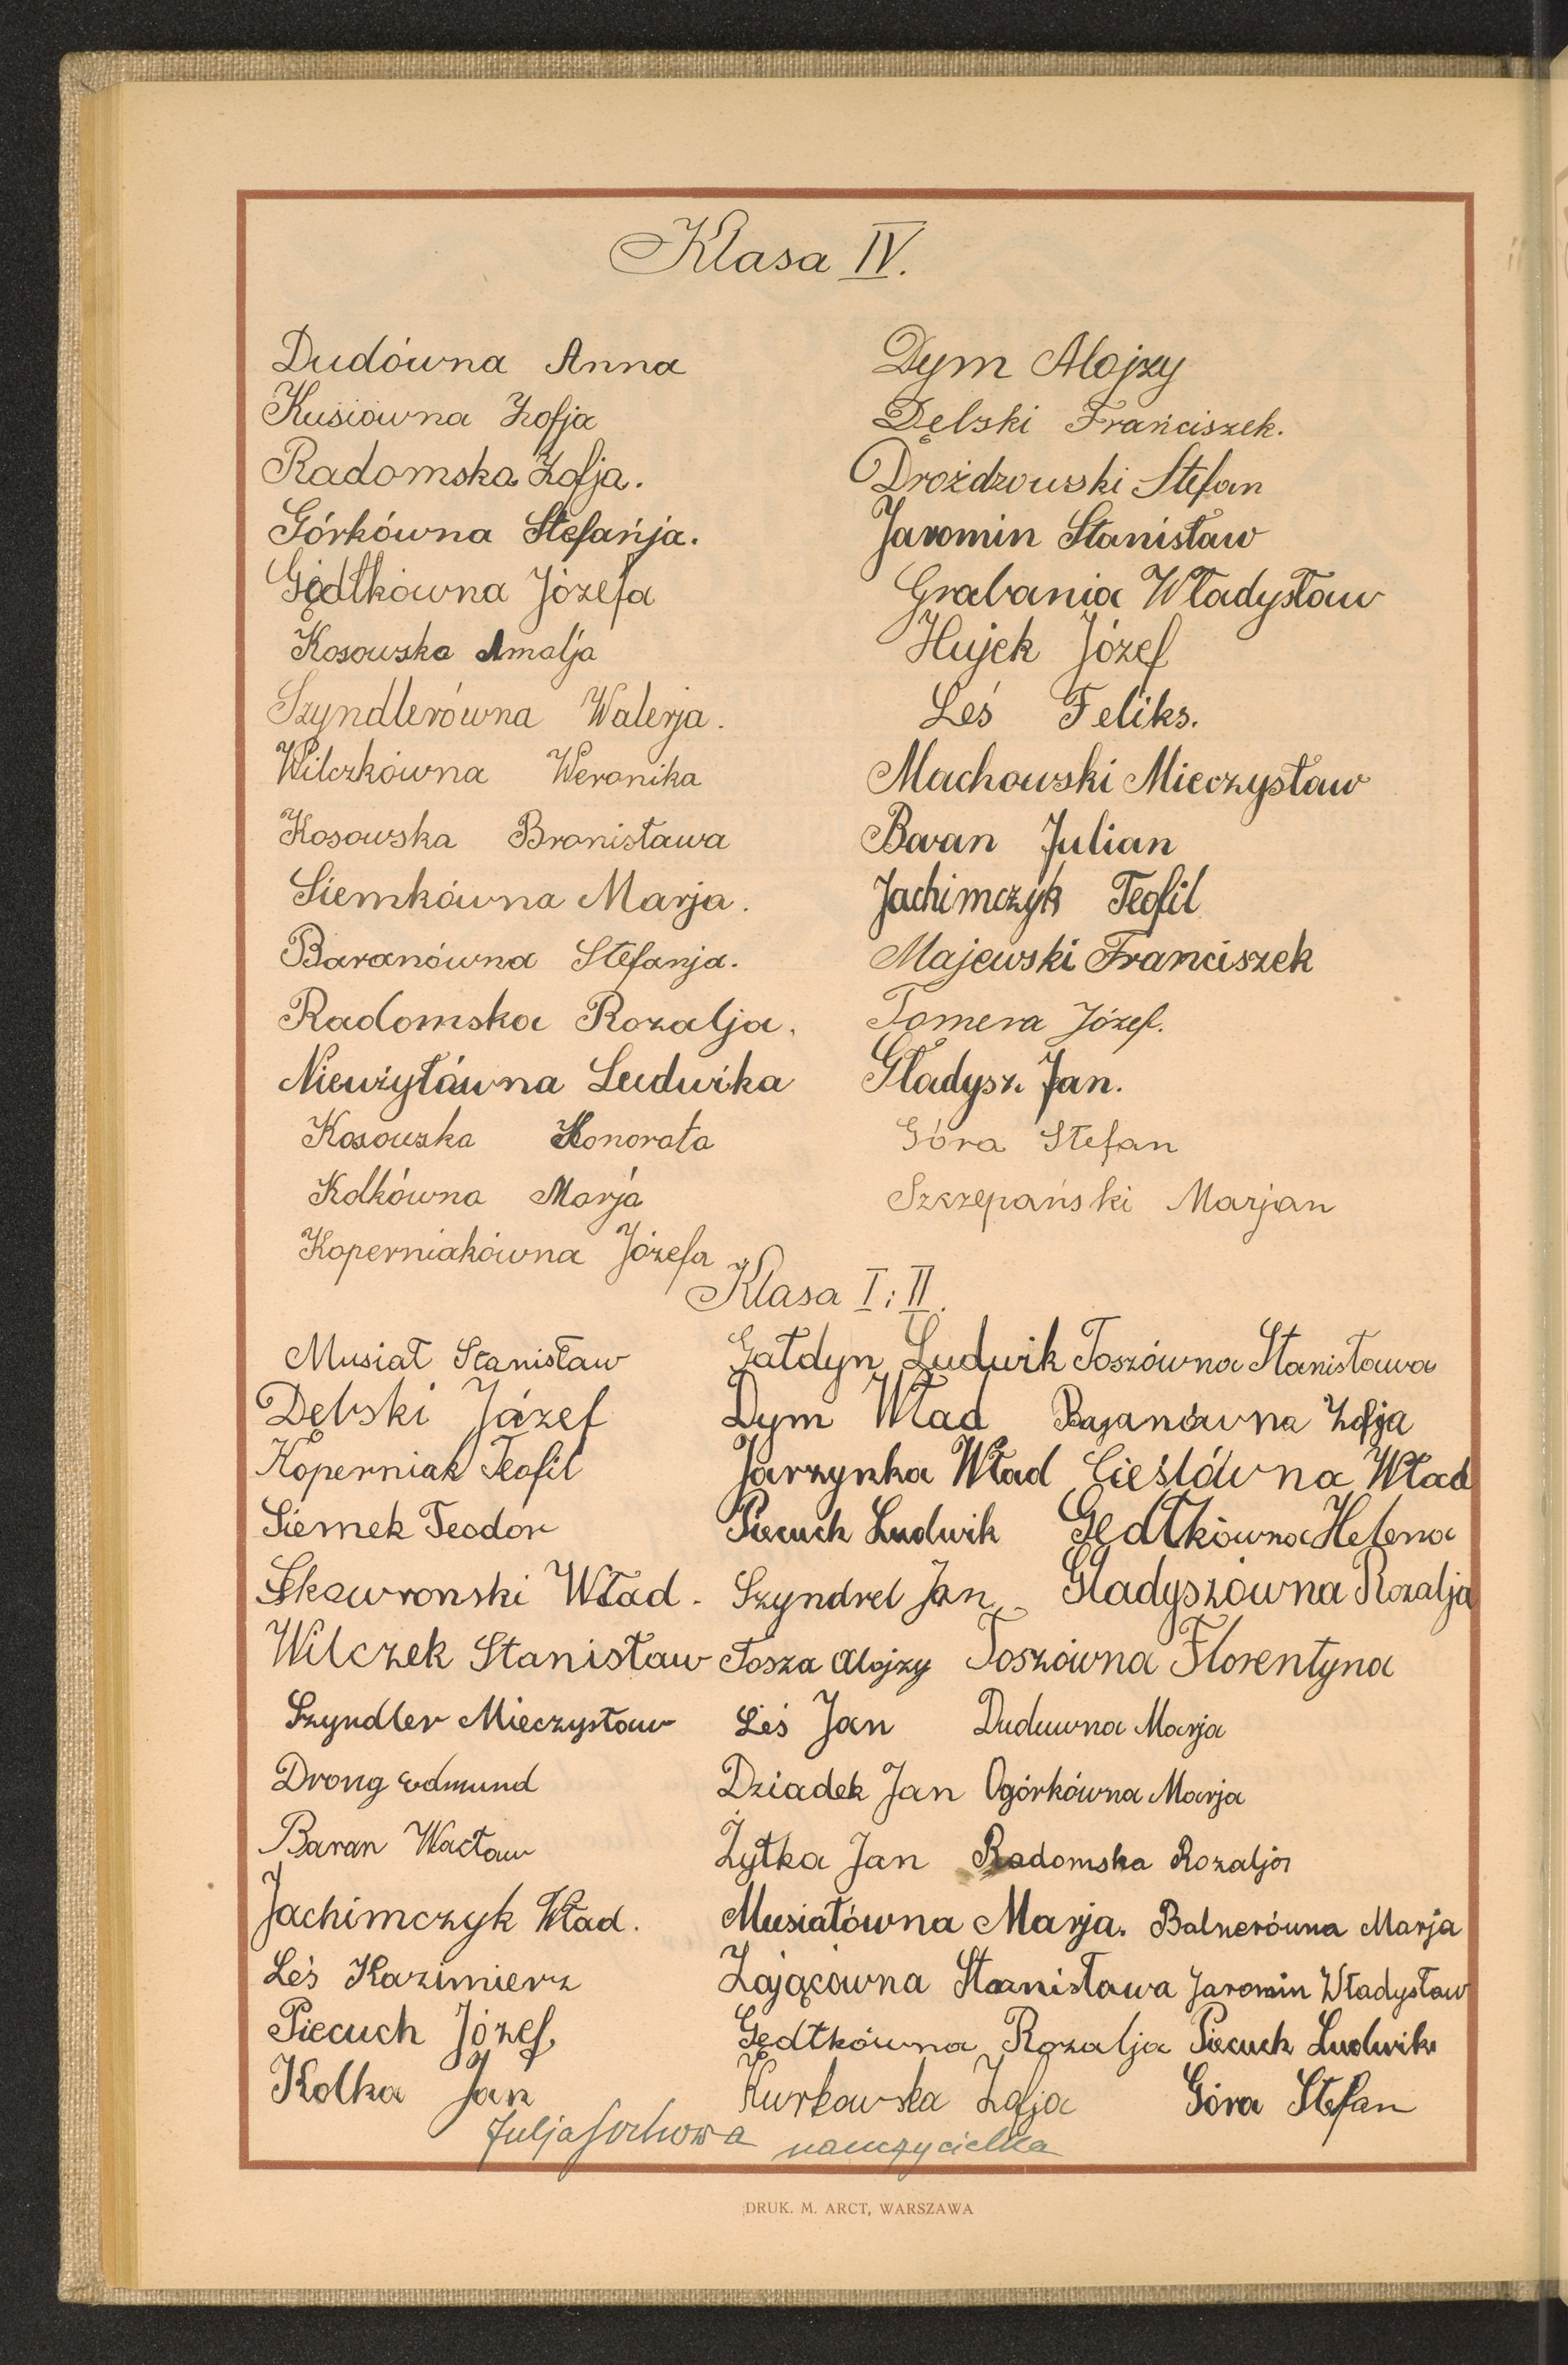 Klasa IV.
Dudówna Anna
Kusiówna Zofja
Radomska Zofja.
Górkówna Stefańja.
Gędłkówna Józefa
Kosowska Amalja
Szyndlerówna Walerja.
Wilczkówna Weronika
Kosowska Bronisława
Siemkówna Marja.
Baranówna Stefanja.
Radomska Rozalja.
Niewżytówna Ludwika
Kosowska Honorata
Kolkówna Marja
Koperniakówna Józefa
Dym Alojzy
Dębski Frańciszek.
Drożdzowski Stefan
Jaromin Stanisław
Grabania Władysław
Hujek Józef
Leś Feliks.
Machowski Mieczysław
Baran Julian
Jachimczyk Teofil
Majewski Franciszek
Tomera Józef.
Gładysz Jan.
Góra Stefan
Szczepański Marjan
Klasa I i II.
Musiał Stanisław
Dębski Józef
Koperniak Teofil
Siemek Teodor
Skowronski Wład.
Wilczek Stanisław
Szyndler Mieczysław
Drong Edmund
Baran Wacław
Jachimczyk Wład.
Leś Kazimierz
Piecuch Józef
Kolka Jan
Gałdyn Ludwik Toszówna Stanisława
Dym Wład Baranówna Zofja
Jarzynka Wład Cieślówna Wład
Piecuch Ludwik Gędłkówna Helena
Szyndrel Jan Gładyszówna Rozalja
Tosza Alojzy Toszówna Florentyna
Leś Jan Duduwna Marja
Dziadek Jan Ogórkówna Marja
Żytka Jan Radomska Rozalja
Musiałówna Marja. Balnerówna Marja
Zającówna Stanisława Jaromin Władysław
Gędłkówna Rozalja Piecuch Ludwik
Kurkowska Zofja Góra Stefan
Julja nauczycielka
DRUK. M. ARCT, WARSZAWA